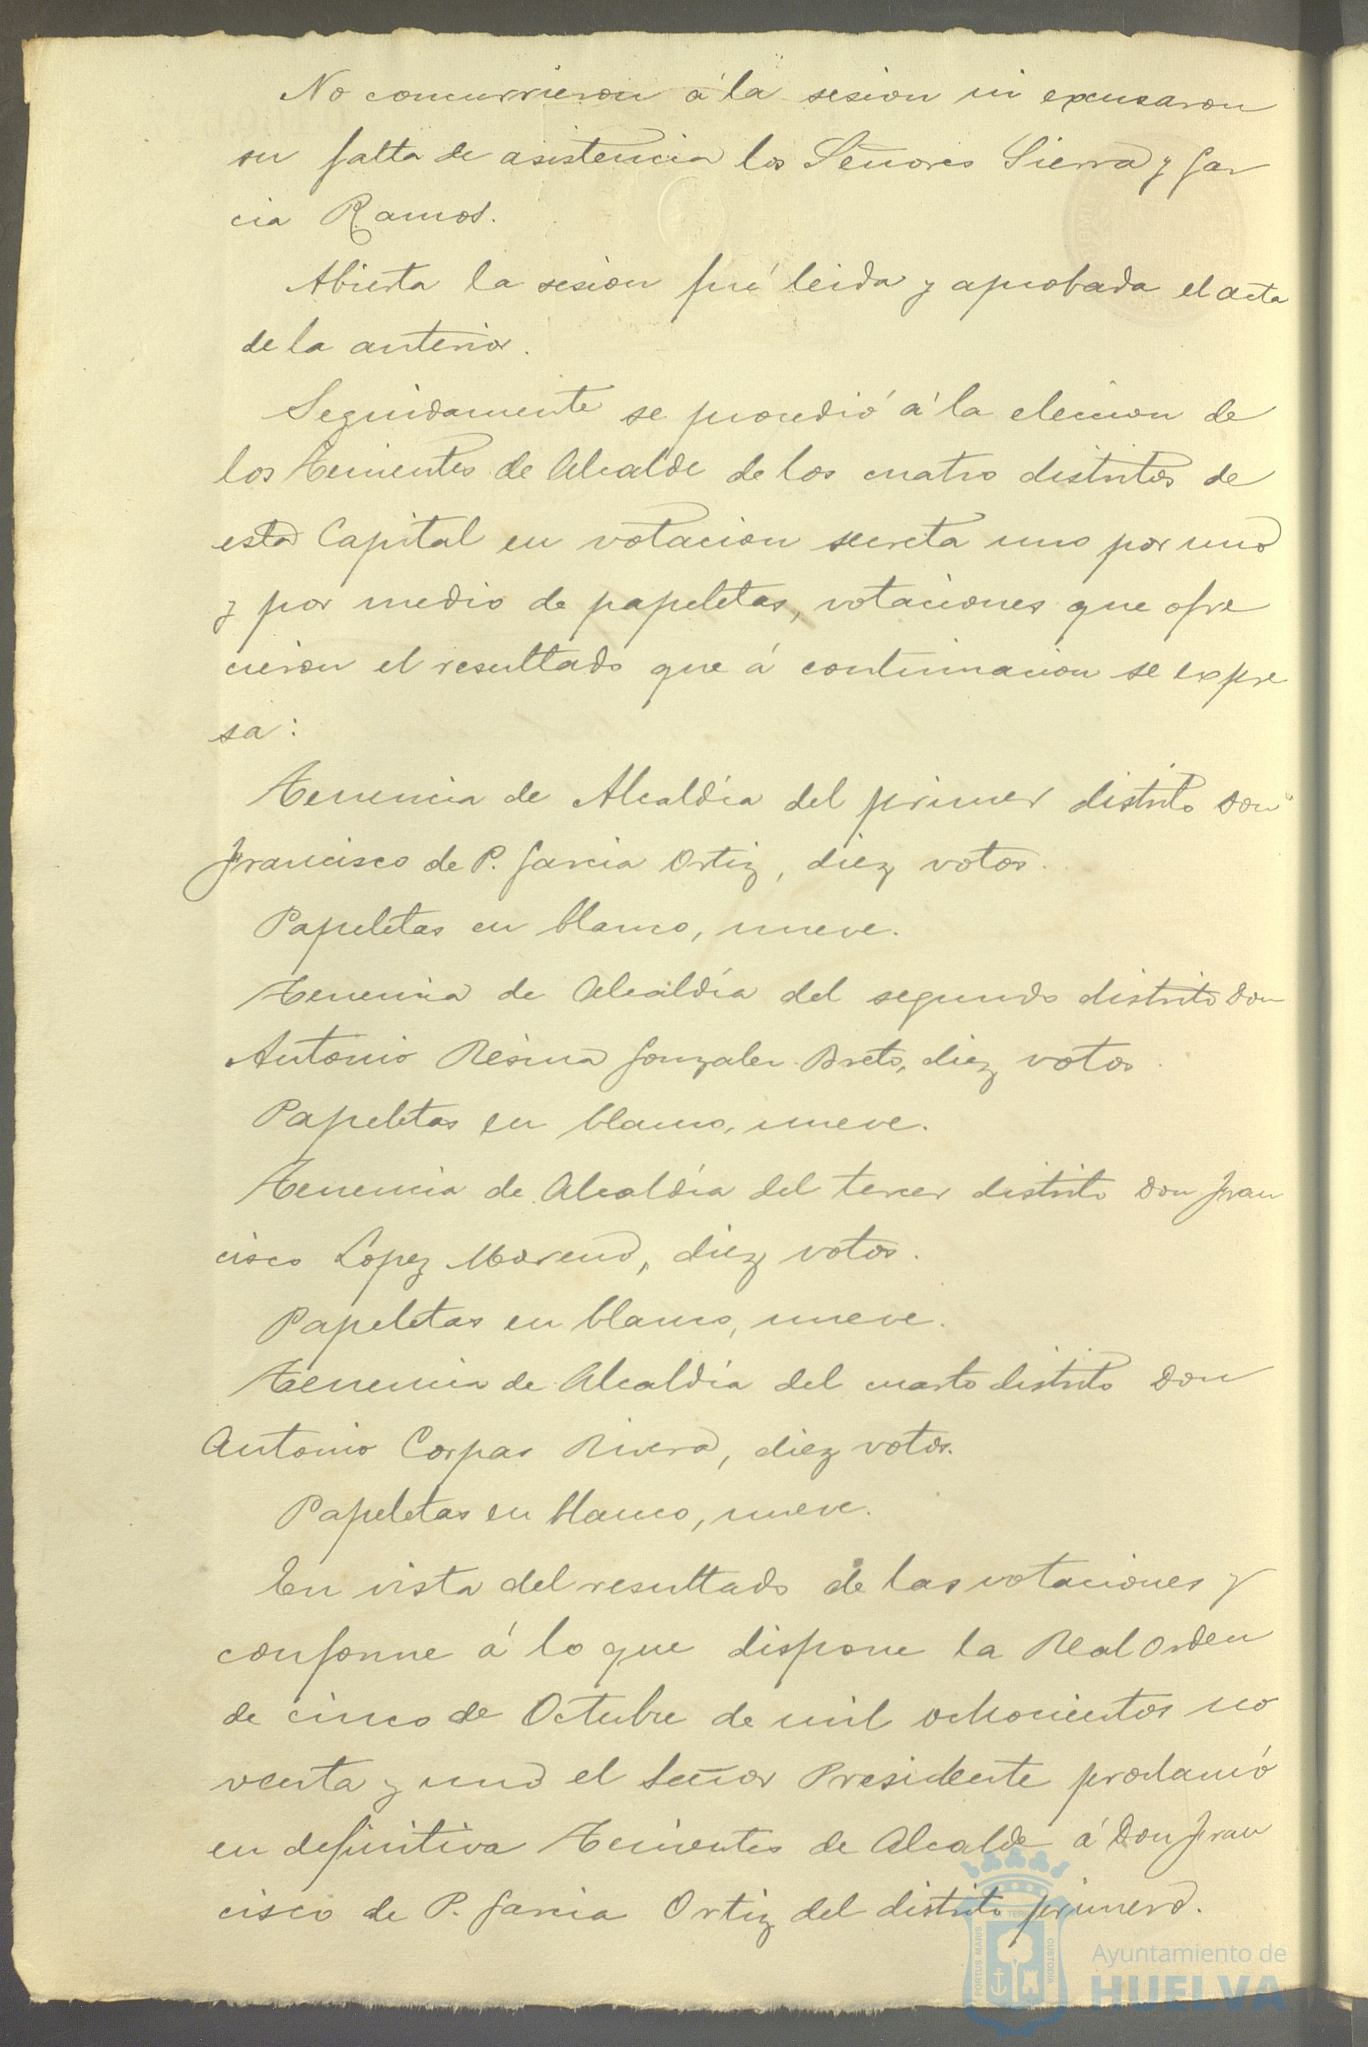 No concurrieron á la sesion ni excusaron
su falta de asistencia los Señores Sierra y Gar
cia Ramos.
Abierta la sesion fué leida y aprobada el acta
de la anterior.
Seguidamente se procedió á la eleccion de
los Tenientes de Alcalde de los cuatro distritos de
esta Capital en votacion secreta uno por uno
y por medio de papeletas, votaciones que ofre
cieron el resultado que á continuacion se expre
sa:
Tenencia de Alcaldía del primer distrito Don
Francisco de P. Garcia Ortiz, diez votos.
Papeletas en blanco, nueve.
Tenencia de Alcaldía del segundo distrito Don
Antonio Resina Gonzalez Breto, diez votos.
Papeletas en blanco, nueve.
Tenencia de Alcaldía del tercer distrito Don Fran
cisco López Moreno, diez votos.
Papeletas en blanco, nueve.
Tenencia de Alcaldía del cuarto distrito Don
Antonio Corpas Rivera, diez votos.
Papeletas en blanco, nueve.
En vista del resultado de las votaciones y
conforme á lo que dispone la Real Orden
de cinco de Octubre de mil ochocientos no
venta y uno el Señor Presidente proclamó
en definitiva Tenientes de Alcalde á Don Fran
cisco de P. Garcia Ortiz del distrito primero.
PORTUS MARIS
CUSTODIA
Ayuntamiento de
HUELVA